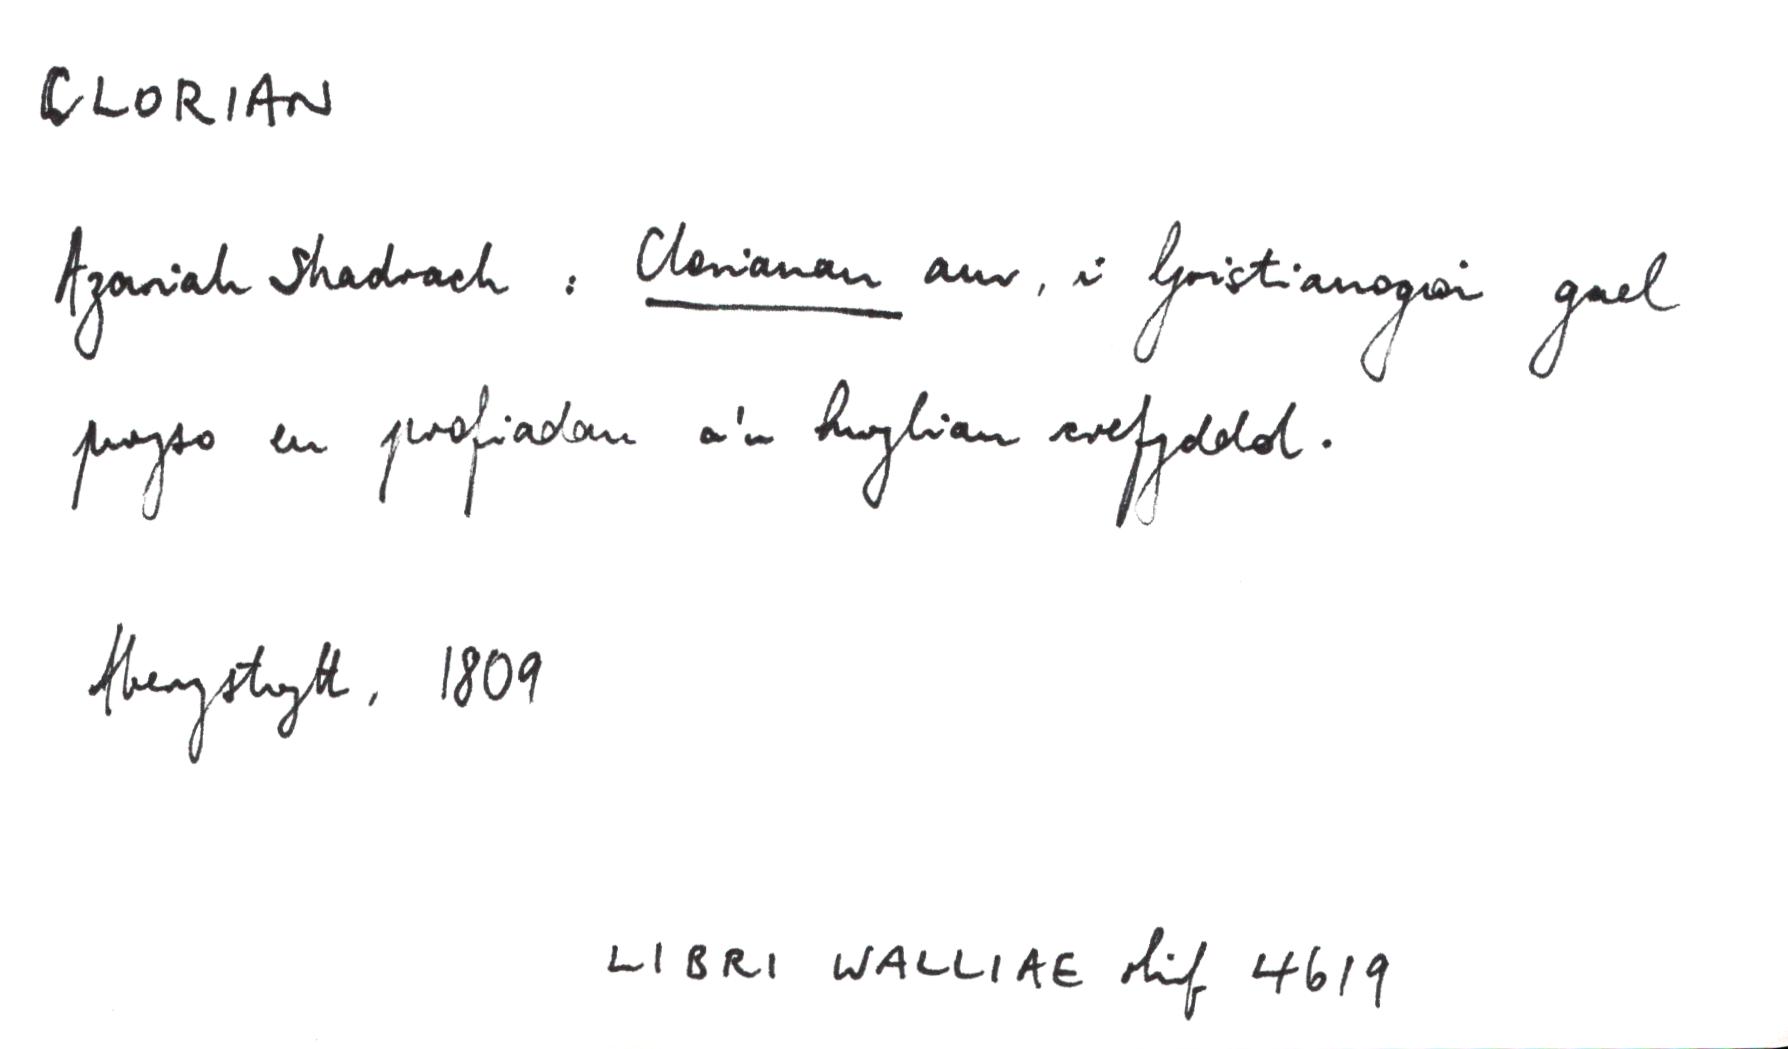 CLORIAN
Azariah Shadrach : Clorianau aur, i Gristianogion gael
pwyso eu profiadau a'u hwylian crefyddol.
Aberystwyth, 1809
LIBRI WALLIAE rhif 4619